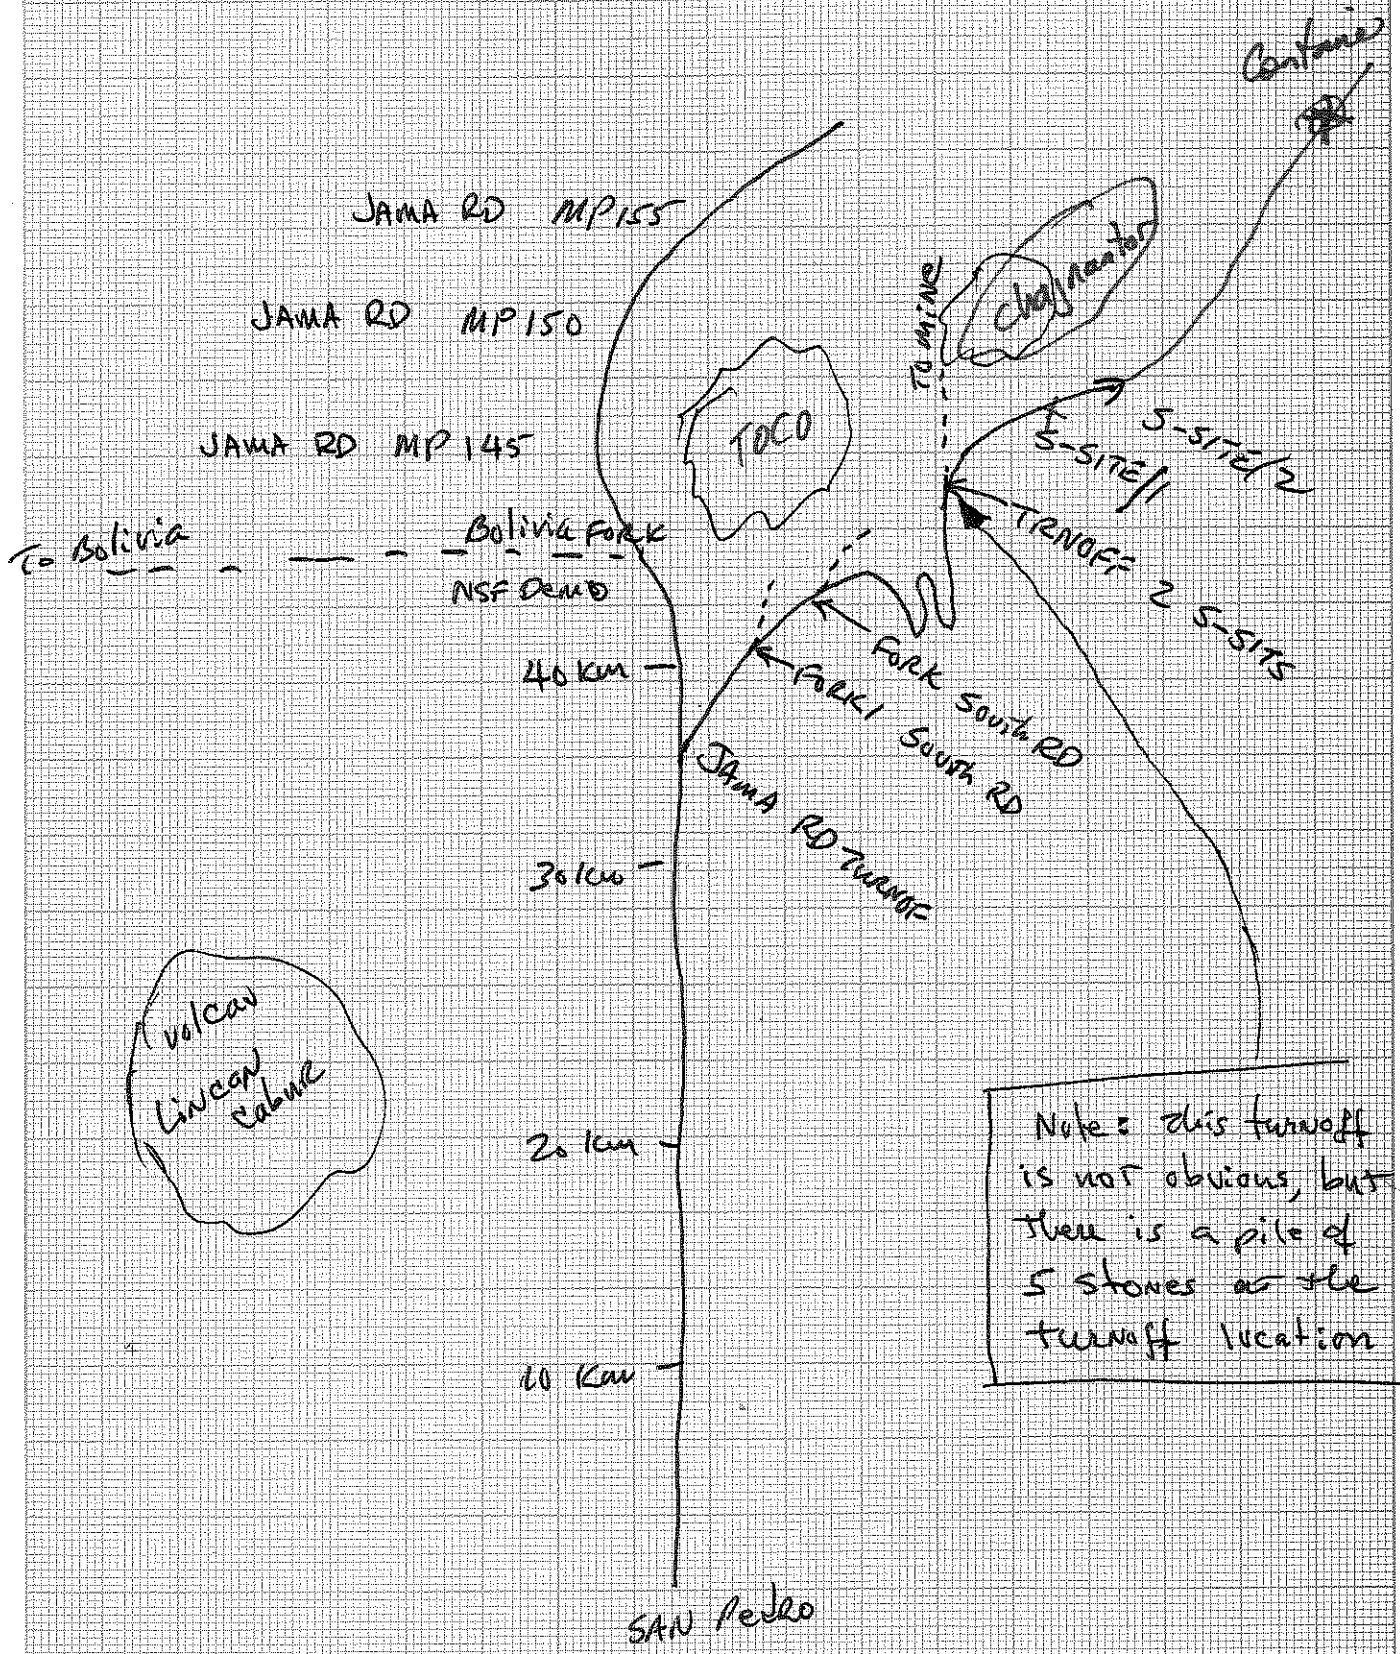 Container
JAMA RD MP155
JAMA RD MP 150
JAMA RD MP 145
TO MINE
Chajnantor
TOCO
S-SITE/1
S-SITE/2
TRNOFF 2 S-SITS
To Bolivia
Bolivia FORK
NSF Demo
FORK South RD
FORK1 South RD
40 km
JAMA RD TURNOF
30 km
volcan
LiNCAN
cabuR
20 km
Note: this turnoff
is not obvious, but
there is a pile of
5 stones at the
turnoff location
10 Km
SAN PedRO